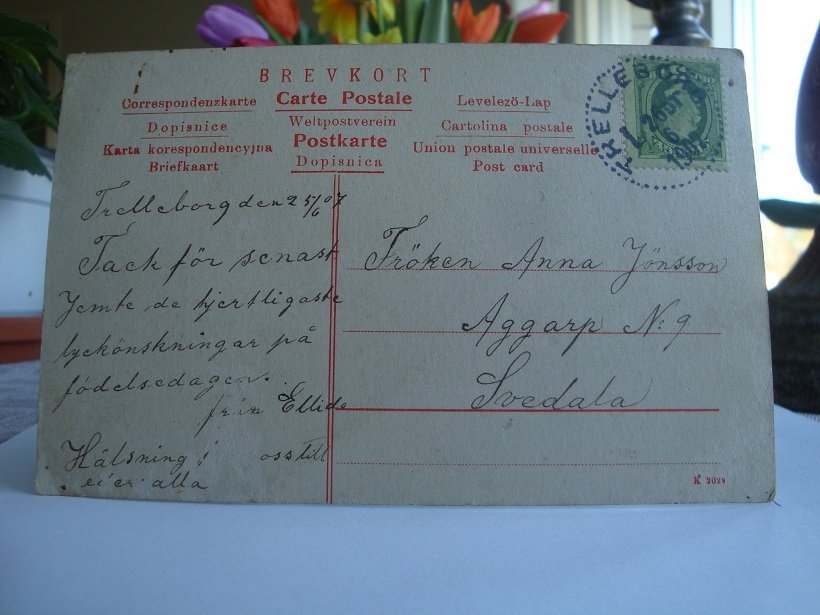 BREVKORT
Correspondenzkarte Carte Postale Levelező-Lap
Dopisnice Weltpostverein Cartolina postale
Karta korespondencyjna Postkarte Union postale universelle
Briefkaart Dopisnica Post card
TRELLEBORG
1907
Trelleborg den 25/6 07
Tack för senast
Jemte de hjertligaste
lyckönskningar på
födelsedagen.
från Ellida
Hälsning oss till
er alla
Fröken Anna Jönsson
Aggarp N:9
Svedala
K 2024